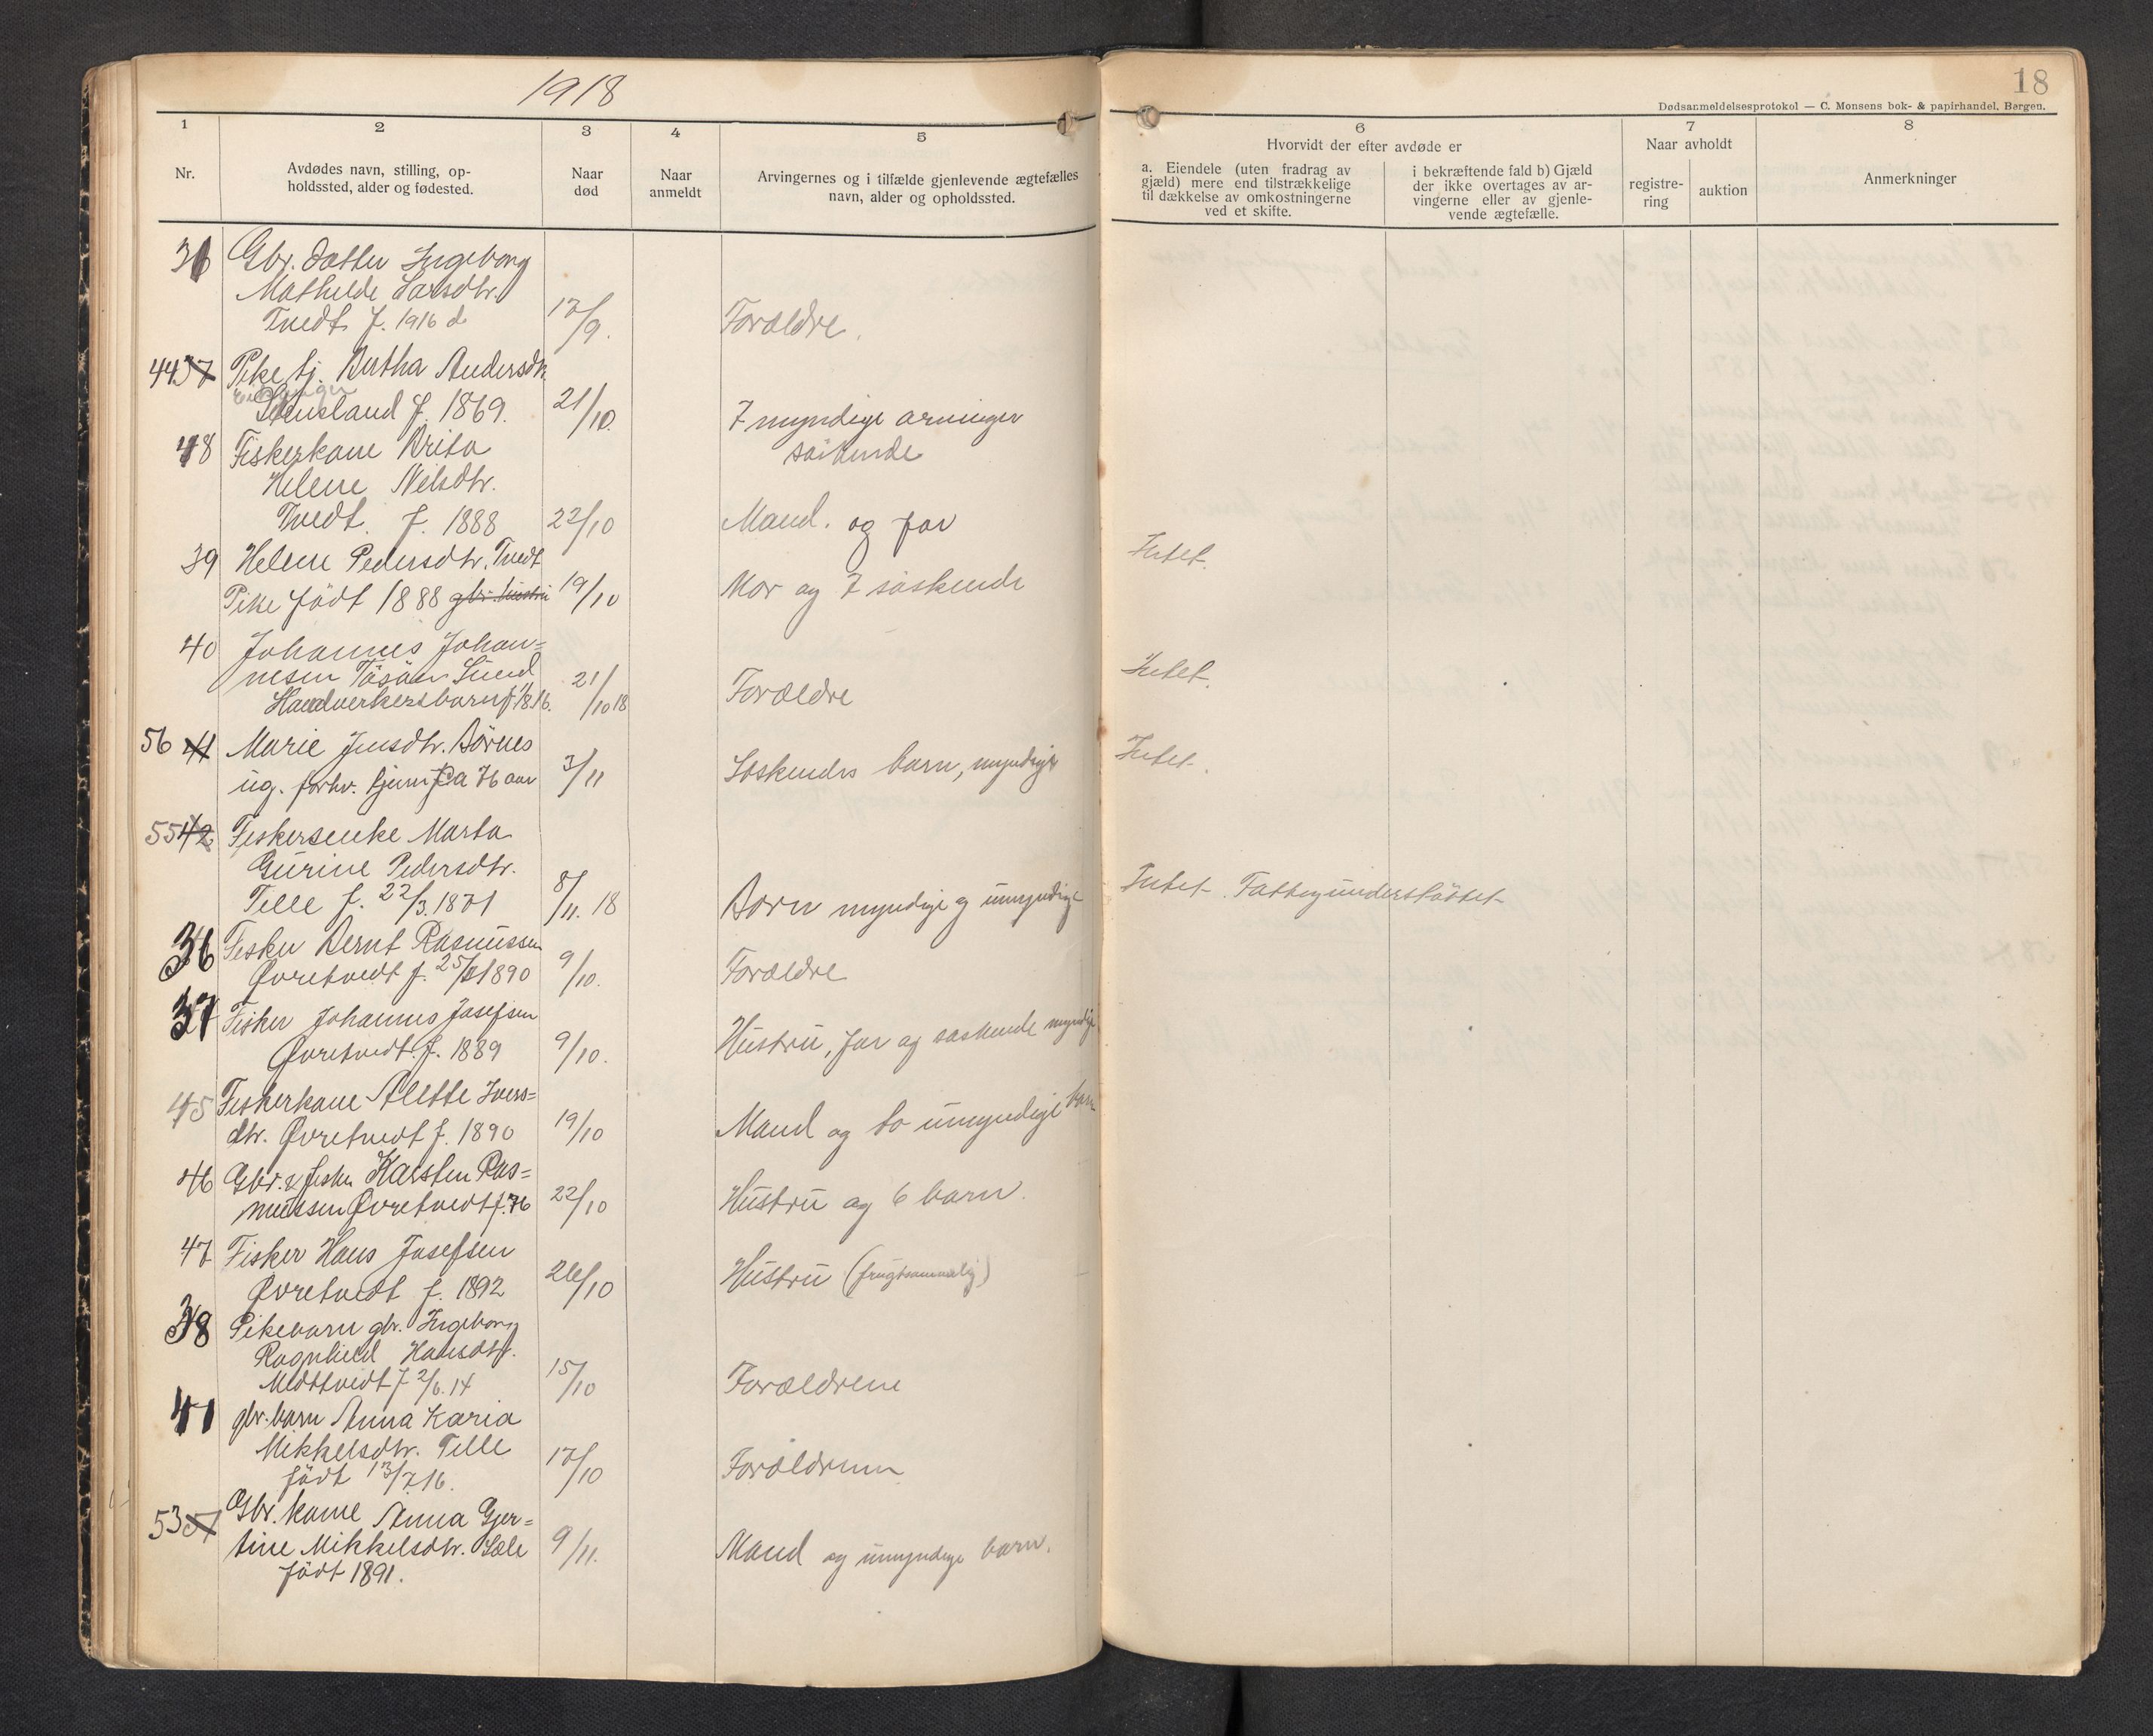 1918
18
Dødsanmeldelsesprotokol — C. Monsens bok- & papirhandel, Bergen.
1
2
3
4
5
6
7
8
Nr.
Avdødes navn, stilling, op-
holdssted, alder og fødested.
Naar
død
Naar
anmeldt
Arvingernes og i tilfælde gjenlevende ægtefælles
navn, alder og opholdssted.
Hvorvidt der efter avdøde er
a. Eiendele (uten fradrag av
gjæld) mere end tilstrækkelige
til dækkelse av omkostningerne
ved et skifte.
i bekræftende fald b) Gjæld
der ikke overtages av ar-
vingerne eller av gjenle-
vende ægtefælle.
Naar avholdt
registre-
ring
auktion
Anmerkninger
Gbr. datter Ingeborg
Mathilde Larsdtr.
Tvedt f. 1916 d
17/9.
Forældre.
44 37 Pike tj. Bertha Andersdtr
Stensland f. 1869.
21/10.
7 myndige arvinger
søskende
48 Fiskerkone Brita
Helene Nilsdtr.
Tvedt. f. 1888
22/10
Mand. og far
39 Helene Pedersdtr. Tvedt
Pike født 1888 gbr. hustru
19/10
Mor og 7 søskende
Intet.
40 Johannes Johan=
nesen Sund
Handverkersbarn
21/10 18
Forældre
Intet.
56 41 Marie Jensdtr. Börnes
ug. forhv. tjener ca 76 aar
3/11
Söskendes barn, myndige
Intet.
55 42 Fiskerenke Marta
Gurine Pedersdtr.
Telle f. 22/3. 1871
8/11. 18
Børn myndige og umyndige
Intet. Fattigunderstöttet
36 Fisker Bernt Rasmussen
Øvretvedt f. 1890
9/10.
Forældre
37 Fisker Johannes Josefsen
Øvretvedt f. 1889
9/10.
Hustru, far og søskende myndige
45 Fiskerkone Alette Ivers=
dtr. Øvretvedt f. 1890
19/10
Mand og to umyndige barn
46 Gbr. & fisker Karsten Ras=
mussen Øvretvedt f. 76
22/10
Hustru og 6 barn.
47 Fisker Hans Josefsen
Øvretvedt f. 1892
26/10
Hustru (frugtsommelig)
38 Pikebarn gbr. Ingeborg
Ragnhild Hansdtr.
Midttvedt f 2/6. 14
15/10
Forældrene
41 gbr. barn Anna Karia
Mikkelsdtr. Telle
født 13/7 16.
17/10
Forældrene
53 Gbr. kone Anna Gjer=
tine Mikkelsdtr. Sæle
født 1891.
9/11.
Mand og umyndige barn.